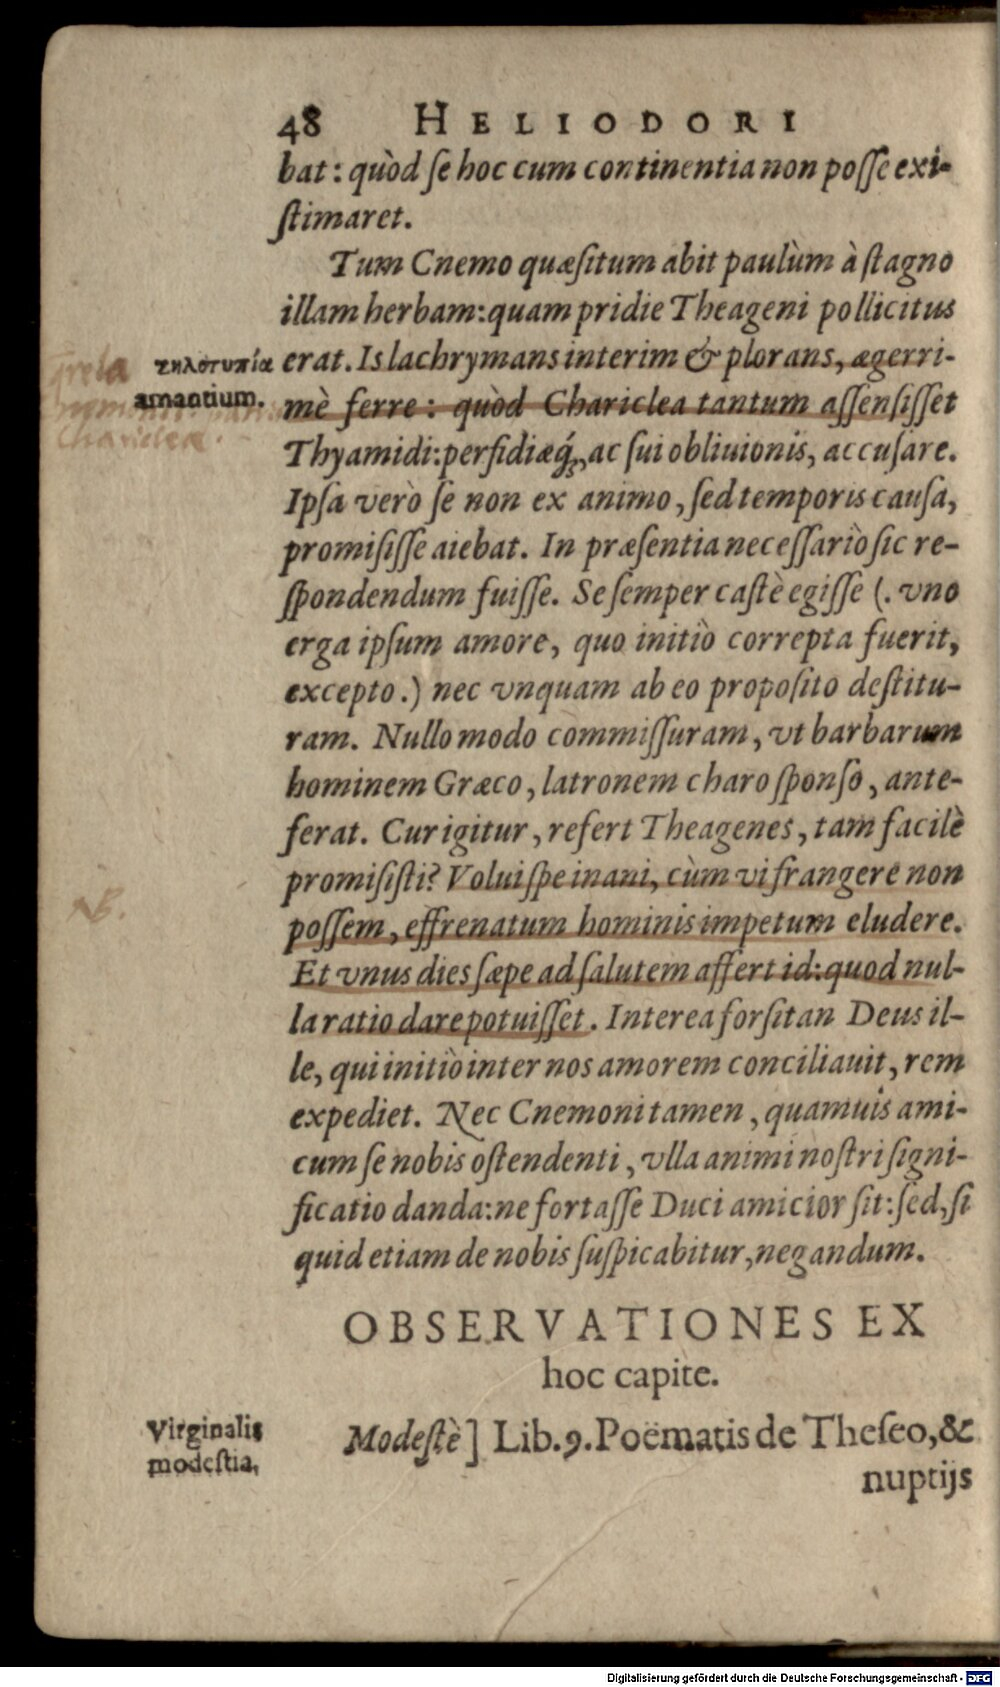 48 HELIODORI
bat: quòd ſe hoc cum continentia non poſſe exi-
ſtimaret.
Tum Cnemo quæſitum abit paulùm à ſtagno
illam herbam: quam pridie Theageni pollicitus
erat. Is lachrymans interim & plorans, ægerri-
mè ferre: quòd Chariclea tantum aſſenſiſſet
Thyamidi: perfidiæq́;, ac ſui obliuionis, accuſare.
Ipſa verò ſe non ex animo, ſed temporis cauſa,
promiſiſſe aiebat. In præſentia neceſſariò ſic re-
ſpondendum fuiſſe. Se ſemper caſtè egiſſe (. vno
erga ipſum amore, quo initiò correpta fuerit,
excepto.) nec vnquam ab eo propoſito deſtitu-
ram. Nullo modo commiſſuram, vt barbarum
hominem Græco, latronem charo ſponſo, ante-
ferat. Cur igitur, refert Theagenes, tam facilè
promiſiſti? Volui ſpe inani, cùm vi frangere non
poſſem, effrenatum hominis impetum eludere.
Et vnus dies ſæpe ad ſalutem affert id: quod nul-
la ratio dare potuiſſet. Interea forſitan Deus il-
le, qui initiò inter nos amorem conciliauit, rem
expediet. Nec Cnemoni tamen, quamuis ami-
cum ſe nobis oſtendenti, vlla animi noſtri ſigni-
ficatio danda: ne fortaſſe Duci amicior ſit: ſed, ſi
quid etiam de nobis ſuſpicabitur, negandum.
ζηλοτυπία
amantium.
Chariclea.
NB.
OBSERVATIONES EX
hoc capite.
Virginalis
modeſtia,
Modeſtè] Lib. 9. Poëmatis de Theſeo, &
nuptijs
Digitalisierung gefördert durch die Deutsche Forschungsgemeinschaft - DFG